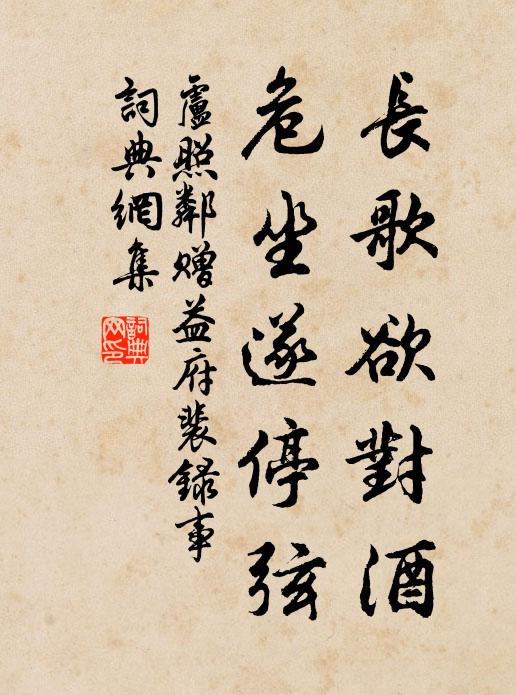 長歌欲對酒
危坐遂停弦
盧照鄰贈益府裴錄事
詞典網集
詞典網印